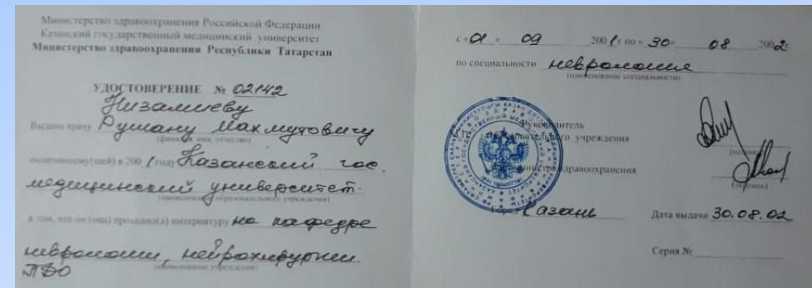 Министерство здравоохранения Российской Федерации
Казанский государственный медицинский университет
Министерство здравоохранения Республики Татарстан
УДОСТОВЕРЕНИЕ № 02142
Низамиеву
Выдано врачу Рушану Махмутовичу
(фамилия, имя, отчество)
окончившему(шей) в 2001 году Казанский гос.
медицинский университет.
(наименование образовательного учреждения)
в том, что он (она) проходил(а) интернатуру на кафедре
неврологии, нейрохирургии
ПДО
(наименование учреждения)
с «01» 09 2001 г. по «30» 08 2002г
по специальности неврология
(наименование специальности)
Руководитель
образовательного учреждения
(подпись)
министра здравоохранения
(подпись)
Город Казань
Дата выдачи 30.08.02
Серия №